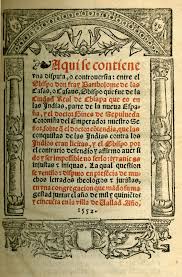 Aqui se contiene
vna disputa, o controuersia: entre el
Obispo don fray Bartholome de las
Casas, o Casaus, Obispo que fue de la
Ciudad Real de Chiapa que es en
las Indias, parte de la nueua Espa-
ña, y el doctor Gines de Sepulueda
Coronista del Emperador nuestro Se-
ñor sobre el doctor contendia, que las
conquistas de las Indias contra los
Indios eran licitas, y el Obispo por
el contrario defendio y affirmo auer si-
do y ser imposible no serlo: tyranicas in-
justas e iniquas. La qual question
se ventilo e disputo en presencia de mu-
chos letrados theologos y juristas,
en vna congregacion que mando su ma-
gestad juntar el año de mil y quinientos
y cincuenta en la villa de Valladolid. Año.
1552